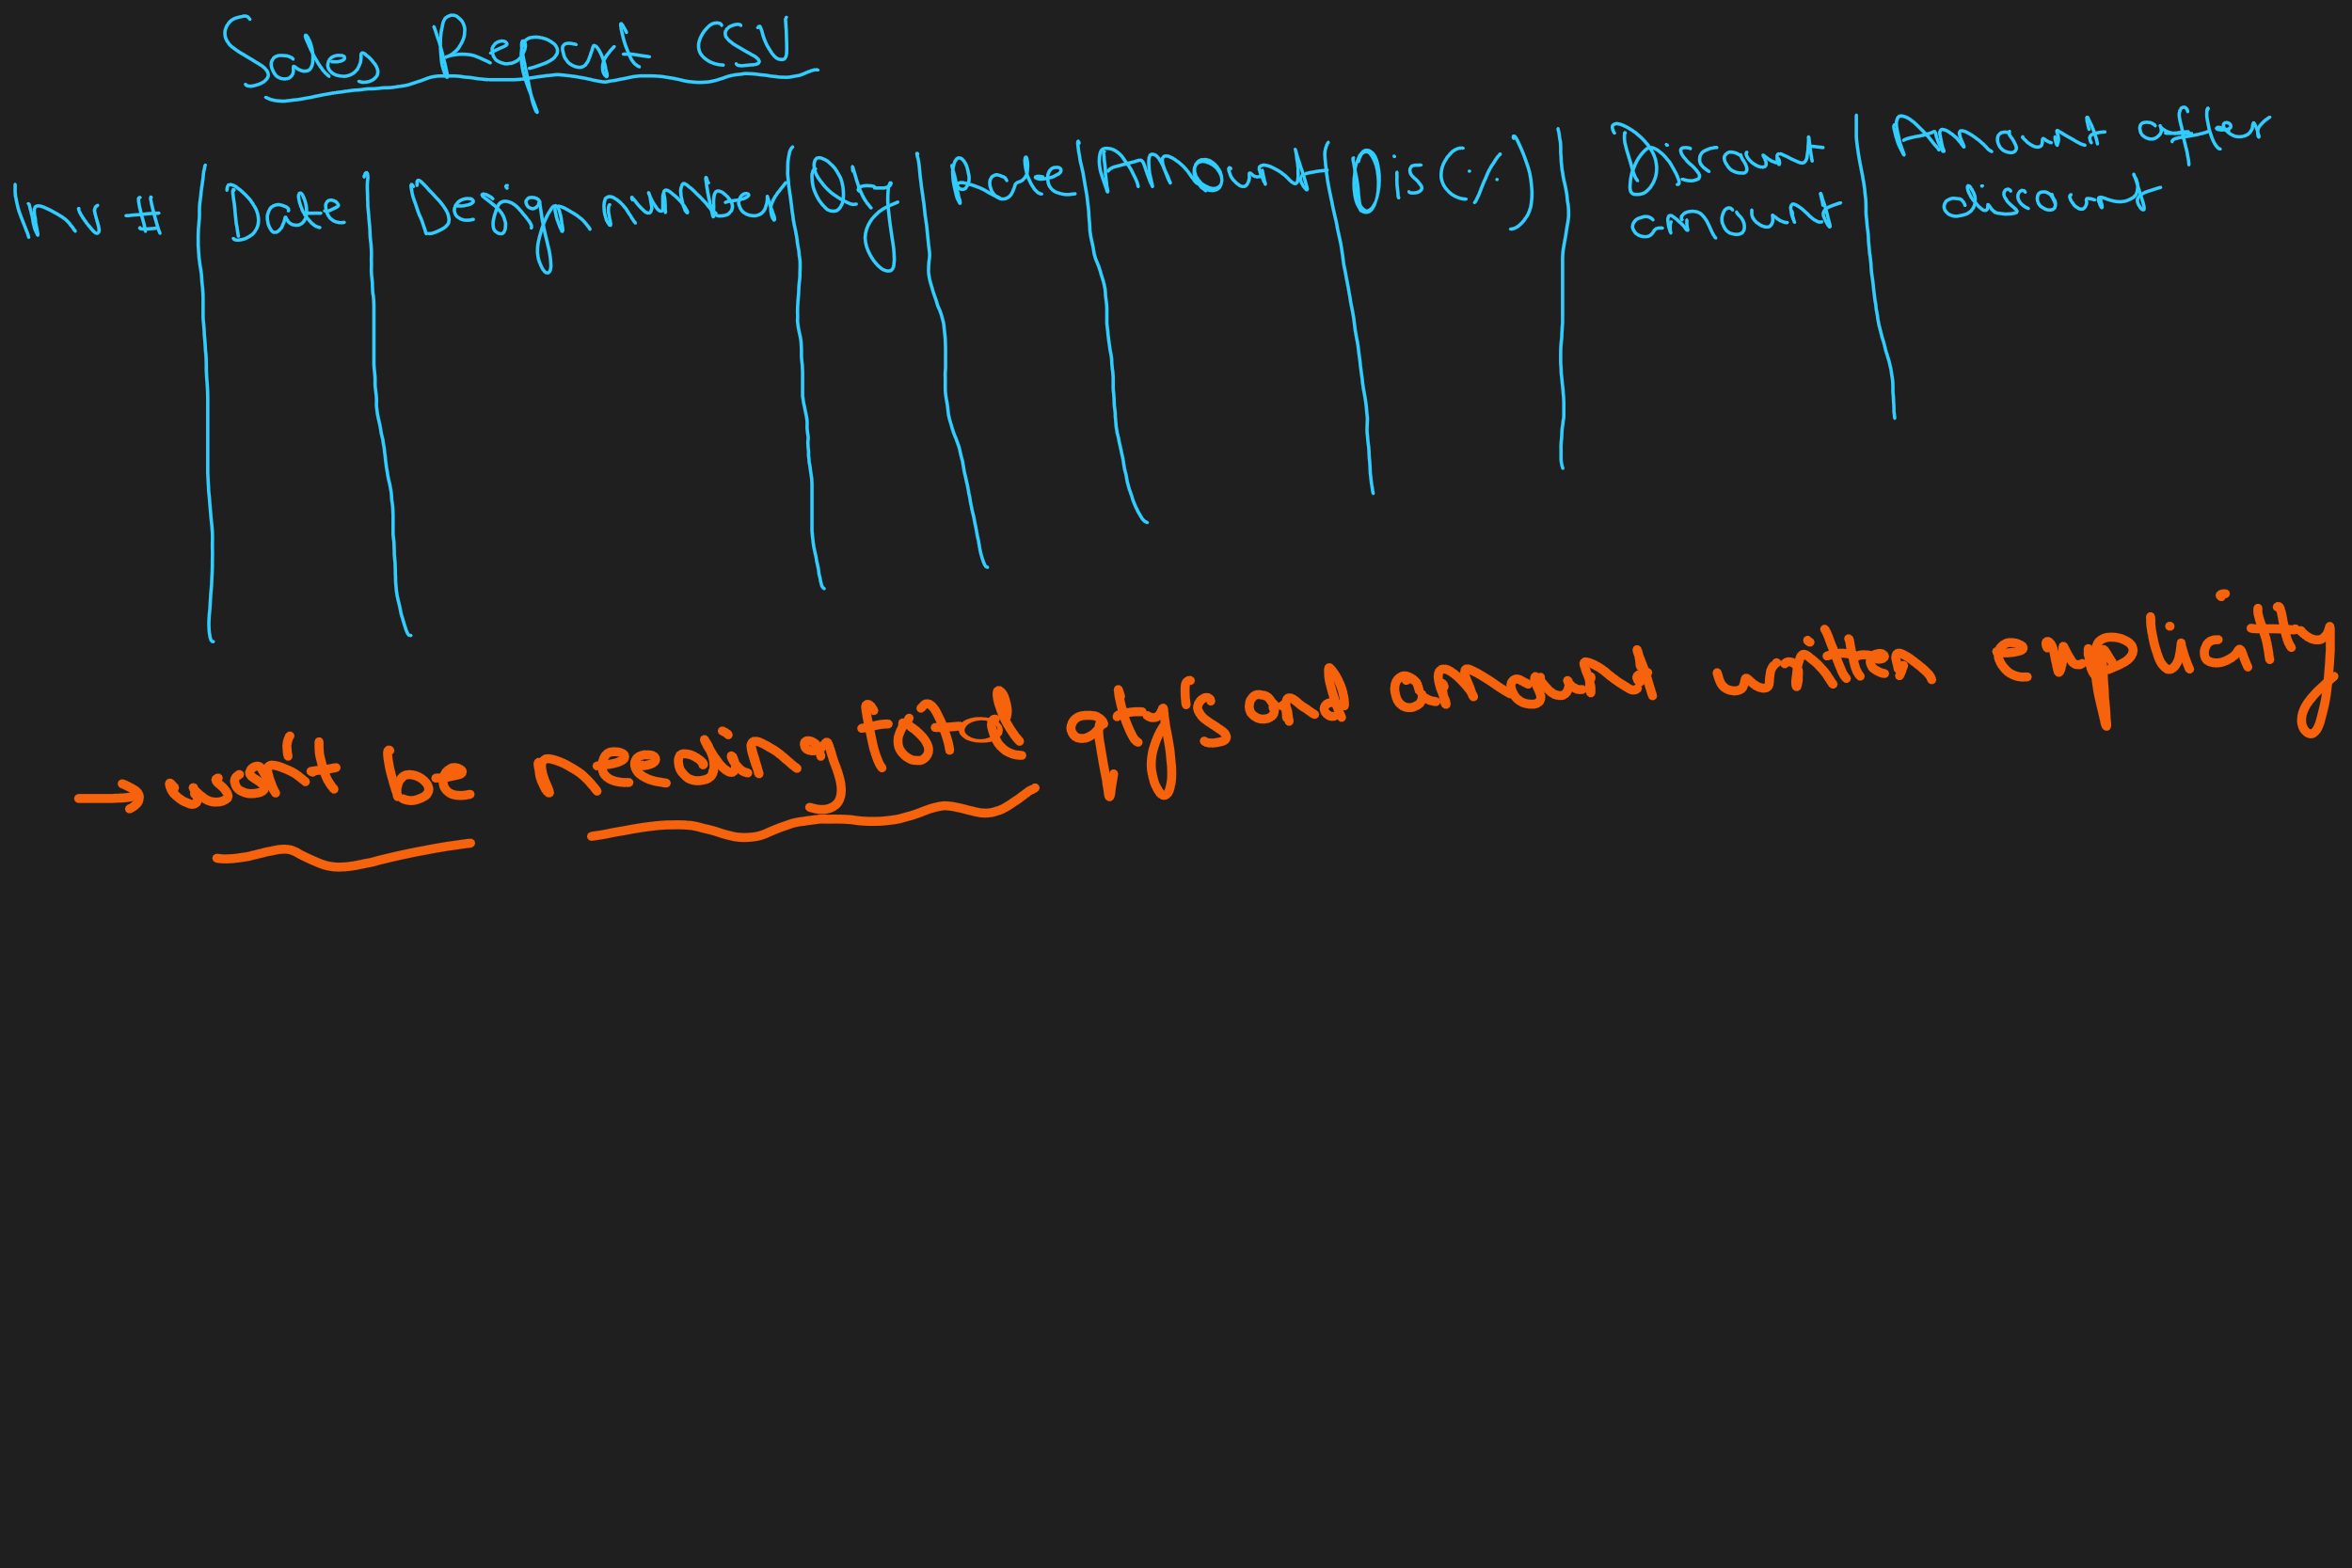 Sales Report CSV
Inv # Date Design number Qty Rate Amount Disc (%) Disc amount Amount after discount
→ wont be needing total qty's and amount written explicitly